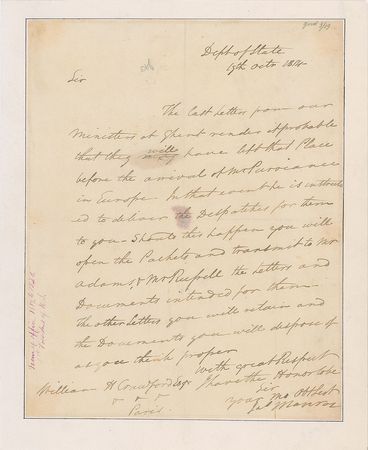 Dept of State
19th Octr 1814
Sir
The last letters from our
Ministers at Ghent render it probable
that they will have left that Place
before the arrival of Mr Purviance
in Europe. In that event he is instruct
ed to deliver the Despatches for them
to you. Should this happen you will
open the Packets and transmit to Mr
Adams & Mr Russell the letters and
Documents intended for them.
The other letters you will retain and
the Documents you will dispose of
as you think proper
With great Respect
I have the Honor to be
Sir
your Mo Obt Sert
Jas Monroe
William H Crawford Esqr
Paris.